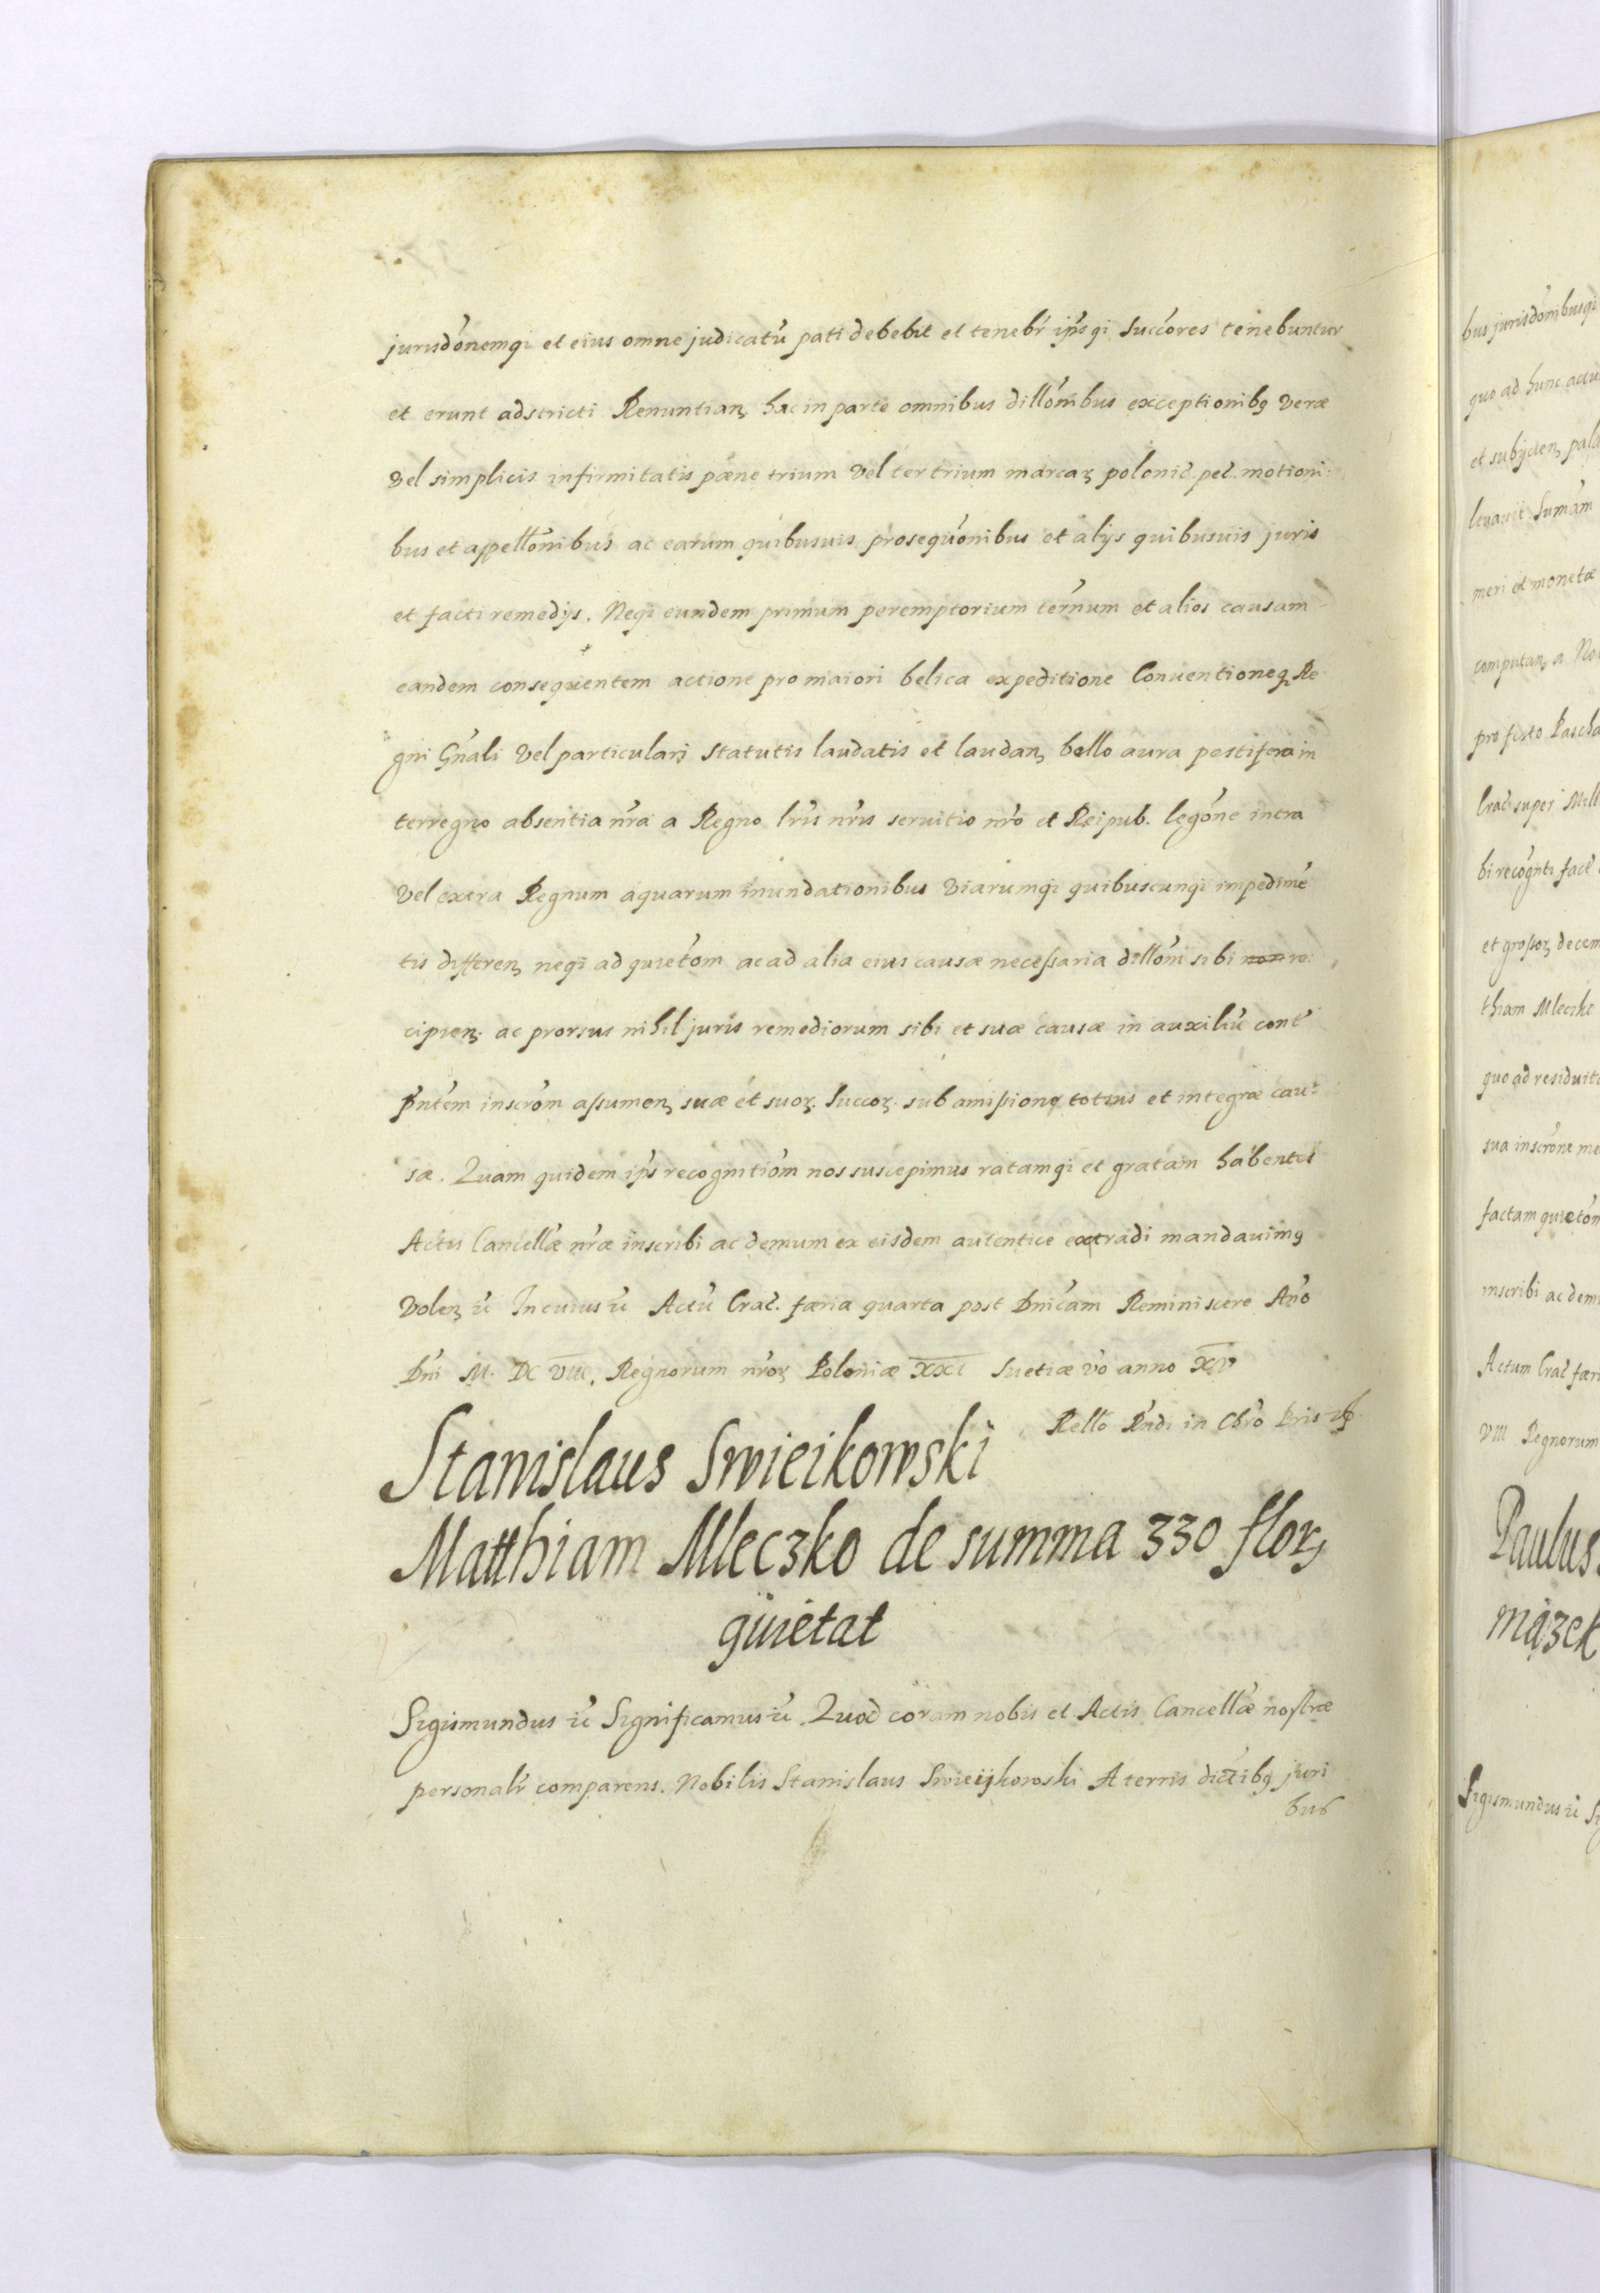 jurisdōnemq̨ et eius omne judicatū pati debebit et tenebr̄ ip̄sq̨ Succōres tenebuntur
et erunt adstricti Renuntianꝫ hac in parte omnibus dillōnibus exceptionibꝫ veræ
vel simplicis infirmitatis pæne trium vel ter trium marcaꝝ polonic̄. pec̄. motioni
bus et appellōnibus ac earum quibusuis prosequōnibus et alijs quibusuis juris
et facti remedijs. Neq̨ eundem primum peremptorium ter̄num et alios causam
eandem consequentem actione pro maiori belica expeditione Conventioneq̨ Re
gni Gn̄ali vel particulari statutis laudatis et laudanꝫ bello aura pestifera in
terregno absentia nr̄a a Regno lr̄is nr̄is seruitio nr̄o et Reipub. legōne intra
vel extra Regnum aquarum inundationibus viarumq̨ quibuscunq̨ impedimē
tis differenꝫ neq̨ ad quietōm ac ad alia eius causæ necessaria dillōni sibi non re
cipienꝫ ac prorsus nihil juris remediorum sibi et suæ causæ in auxiliū cont̄
pn̄tem inscrōm assumenꝫ suæ et suoꝝ. Succoꝝ. sub amissione totius et integræ cau
sæ. Quam quidem ip̄s recognitiōm nos suscepimus ratamq̨ et gratam habentes
Actis Cancellæ nr̄æ inscribi ac demum ex eisdem autentice extradi mandauimꝫ
volenꝫ ꝛc̄ In cuius ꝛc̄ Actū Crac̄. færia quarta post Dnīcam Reminiscere An̄o
Dn̄i M. DC VIII. Regnorum nr̄oꝝ Poloniæ XXI Suetiæ vō anno XV
Rellō Rn̄di in Chr̄o Pris
Stanislaus Swieikowski
Matthiam Mleczko de summa 330 floꝝ
quietat
Sigismundus ꝛc̄ Significamus ꝛc̄ Quod coram nobis et Actis Cancellæ nostræ
personalr̄ comparens. Nobilis Stanislaus Swieijkowski A terris dictībꝫ juri
bus
bus jurisdōnibusq̨
quo ad hunc actu
et subijcienꝫ pala
leuauit Sumām
meri et monetæ
computanꝫ a No
pro festo Pascha
Crac̄ super Mill
bi recōgnti fact̄
et grossoꝝ decem
thiam Mleczko
quo ad residuita
sua inscrōne me
factam quietōm
inscribi ac dem
Actum Crac̄ færi
VIII Regnorum
Paulus
mązek
Sigismundus ꝛc̄ Si